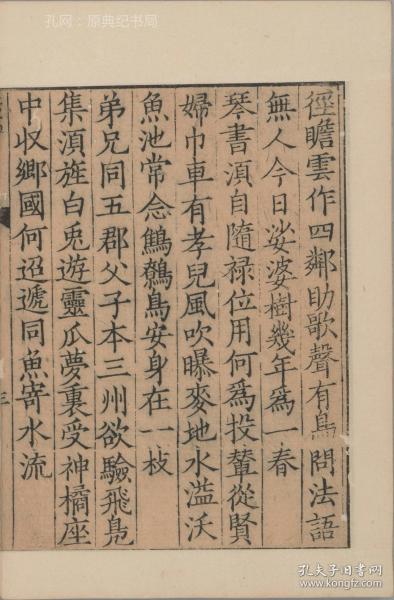 孔网：原典纪书局
徑瞻雲作四鄰助歌聲有鳥問法語
無人今日娑婆樹幾年爲一春
琴書須自隨禄位用何爲投輦從賢
婦巾車有孝兒風吹曝麥地水溢沃
魚池常念鷦鷯鳥安身在一枝
弟兄同五郡父子本三州欲驗飛鳧
集須旌白兎遊靈瓜夢裏受神橘座
中収鄉國何迢遞同魚寄水流
三
孔夫子旧书网
www.kongfz.com